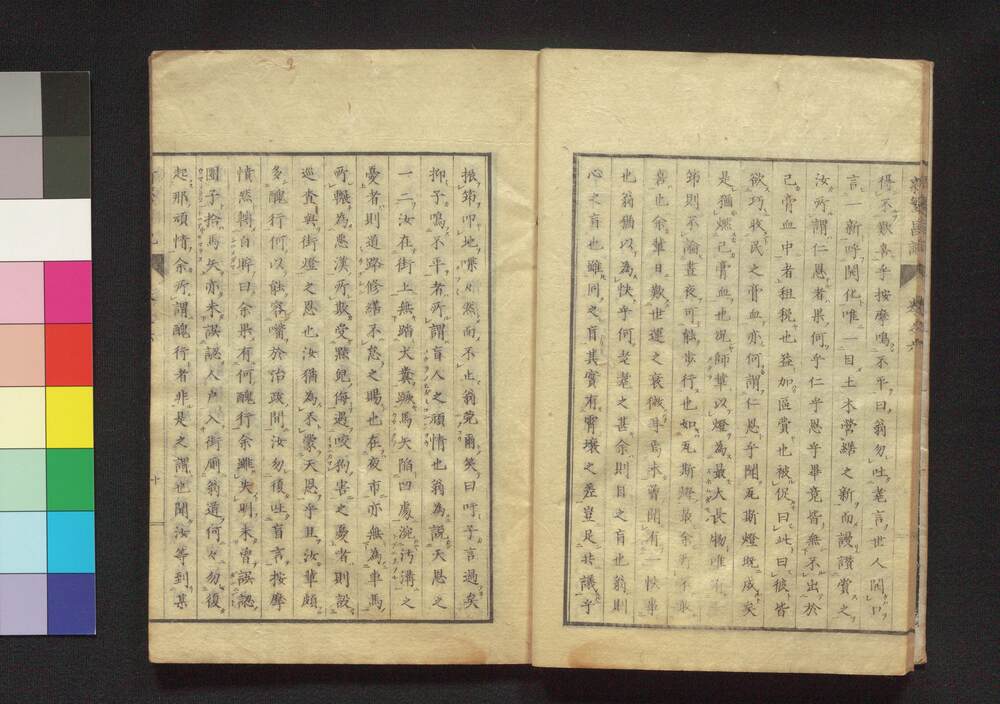 得不歎息乎按摩鳴不平曰翁勿吐耄言世人開口
言一新呼開化唯一目土木營繕之新而謾讚賞之
汝所謂仁恩者果何乎仁乎恩乎畢竟皆無不出於
己膏血中者租税也益加區費也被促曰此曰彼皆
欲巧收民之膏血亦何謂仁恩乎聞瓦斯燈既成矣
是猶燃己膏血也況師輩以燈為最大長物唯有
節則不論晝夜可能步行也如瓦斯燈最余所不敢
喜也余輩日歎世運之衰微耳焉未曽聞有一快事
也翁猶以為快乎何老耄之甚余則目之盲也翁則
心之盲也雖同之盲其實有霄壤之差豈足共議乎
振節叩地喋々然而不止翁莞爾笑曰吁子言過矣
抑子鳴不平者所謂盲人之頑情也翁為説天恩之
一二汝在街上無踏犬糞蹶馬矢陷凹處涴汚溝之
憂者則道路修繕不怠之賜也在夜市亦無為車馬
所輾為惡漢所欺受黠兒侮遇咬狗害之憂者則設
巡査與街燈之恩也汝猶為不蒙天恩乎且汝輩頗
多醜行何以能容嘴於治跋間汝勿復吐盲言按摩
憤然轉白眸曰余果有何醜行余雖失明未曽誤認
團子拾馬矢亦未誤認人戸入街廁翁道何々勿復
起那頑情余所謂醜行者非是之謂也聞汝等到某